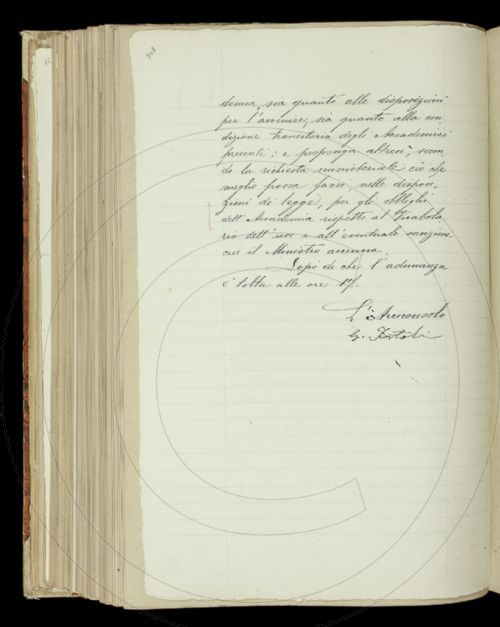 demia, sia quanto alle disposizioni
per l'avvenire, sia quanto alla con-
dizione transitoria degli Accademici
presenti; e proponga altresì, secon-
do la richiesta ministeriale ciò che
meglio possa farsi nelle disposi-
zioni di legge, per gli obblighi
dell'Accademia rispetto al Vocabola
rio dell'uso e all'eventuale sanzione
cui il Ministro accenna.
Dopo di che l'adunanza
è tolta alle ore 17½.
L'Arciconsolo
G.